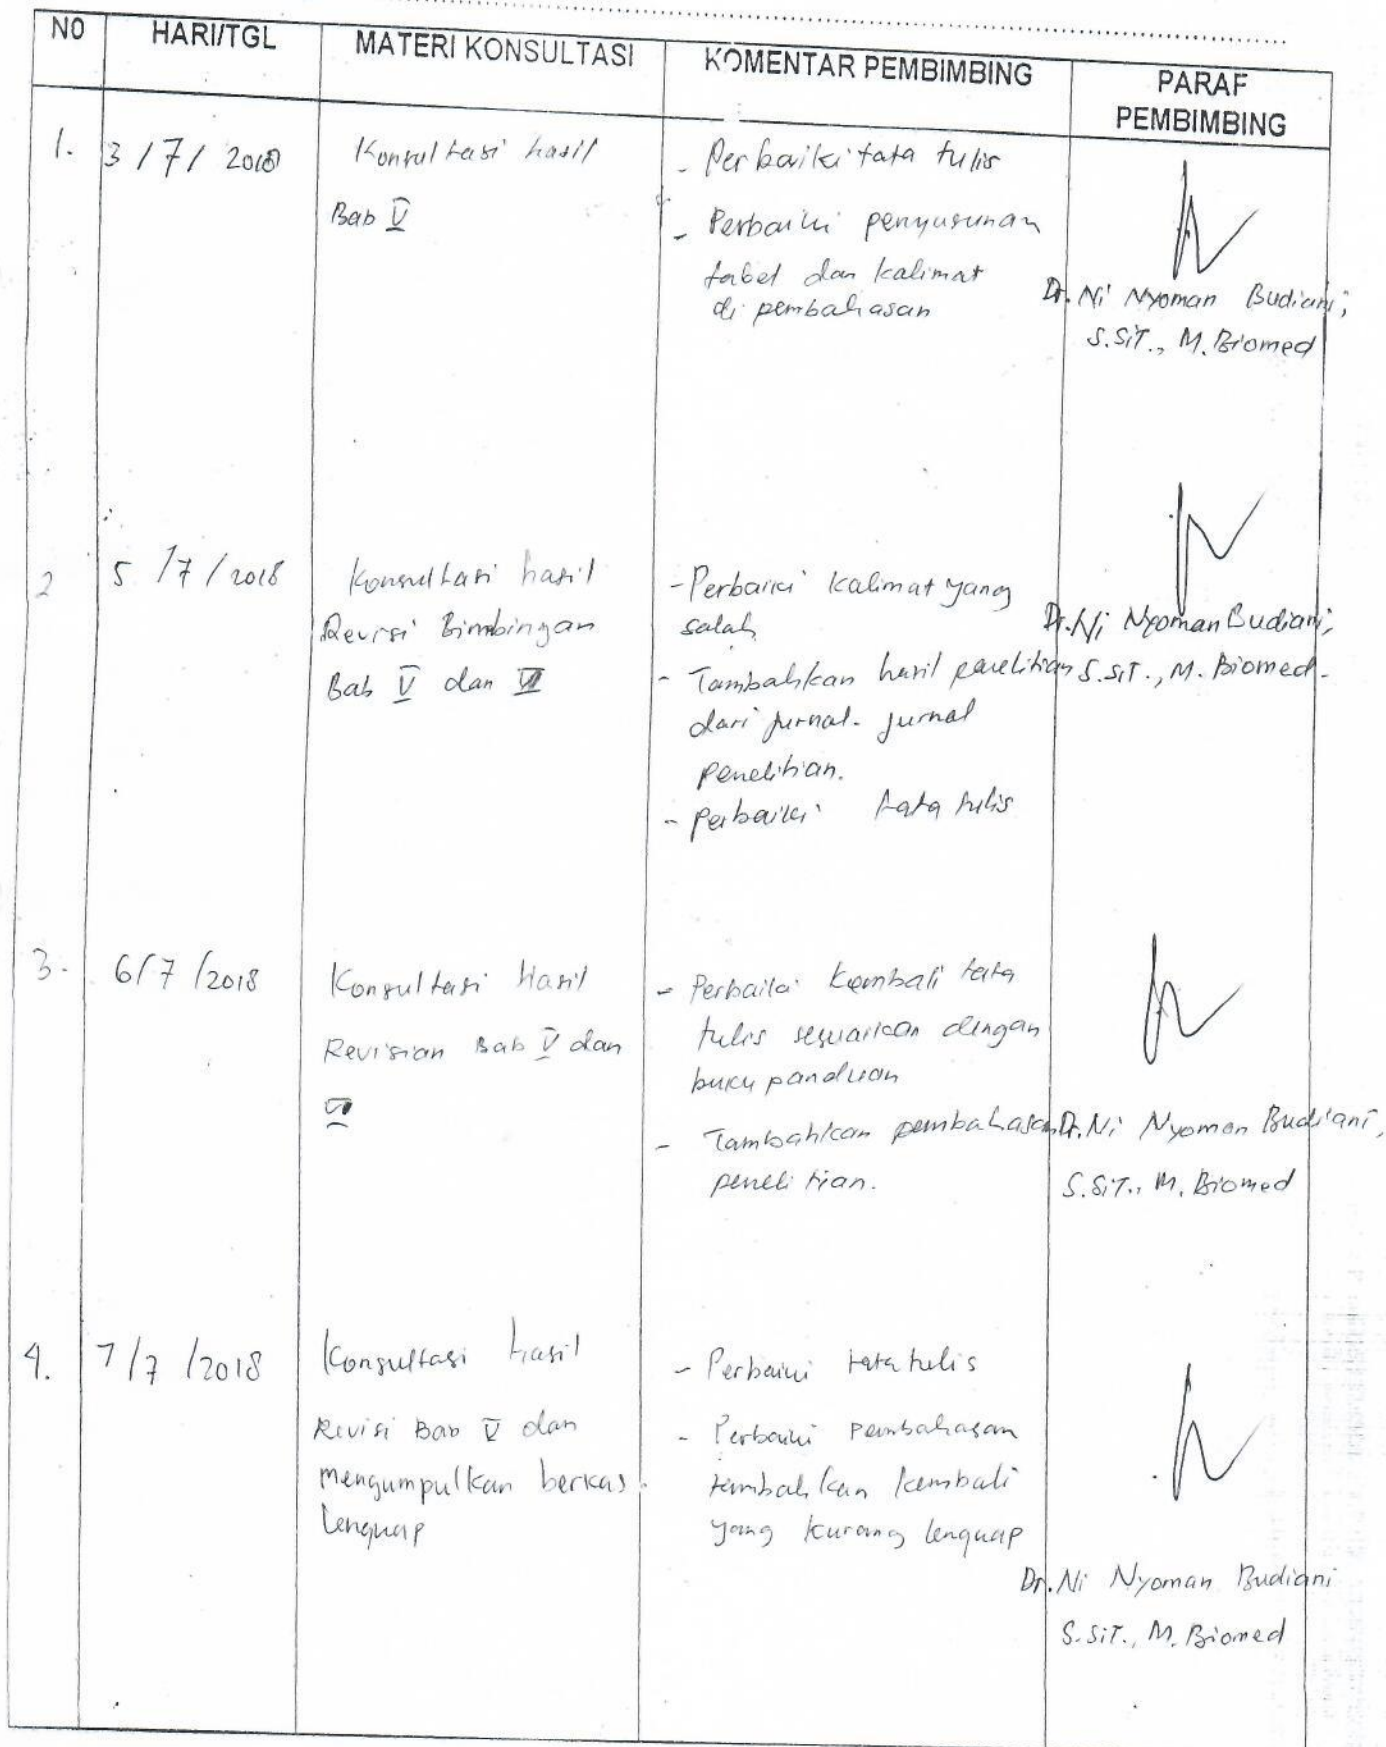 NO HARI/TGL MATERI KONSULTASI KOMENTAR PEMBIMBING PARAF PEMBIMBING
1. 3/7/2018
Konsultasi hasil
Bab V
- Perbaiki tata tulis
- Perbaiki penyusunan
tabel dan kalimat
di pembahasan
Dr. Ni Nyoman Budiani,
S.SiT., M.Biomed
2 5/7/2018
Konsultasi hasil
Revisi Bimbingan
Bab V dan VI
- Perbaiki kalimat yang
salah
- Tambahkan hasil penelitian
dari jurnal-jurnal
penelitian.
- perbaiki tata tulis
Dr. Ni Nyoman Budiani,
S.SiT., M. Biomed.
3. 6/7/2018
Konsultasi Hasil
Revisian Bab V dan
VI
- Perbaiki kembali tata
tulis sesuaikan dengan
buku panduan
- Tambahkan pembahasan
penelitian.
Dr. Ni Nyoman Budiani,
S.SiT., M. Biomed
4. 7/7/2018
Konsultasi hasil
Revisi Bab V dan
mengumpulkan berkas
lengkap
- Perbaiki tata tulis
- Perbaiki pembahasan
tambahkan kembali
yang kurang lengkap
Dr. Ni Nyoman Budiani
S.SiT., M. Biomed